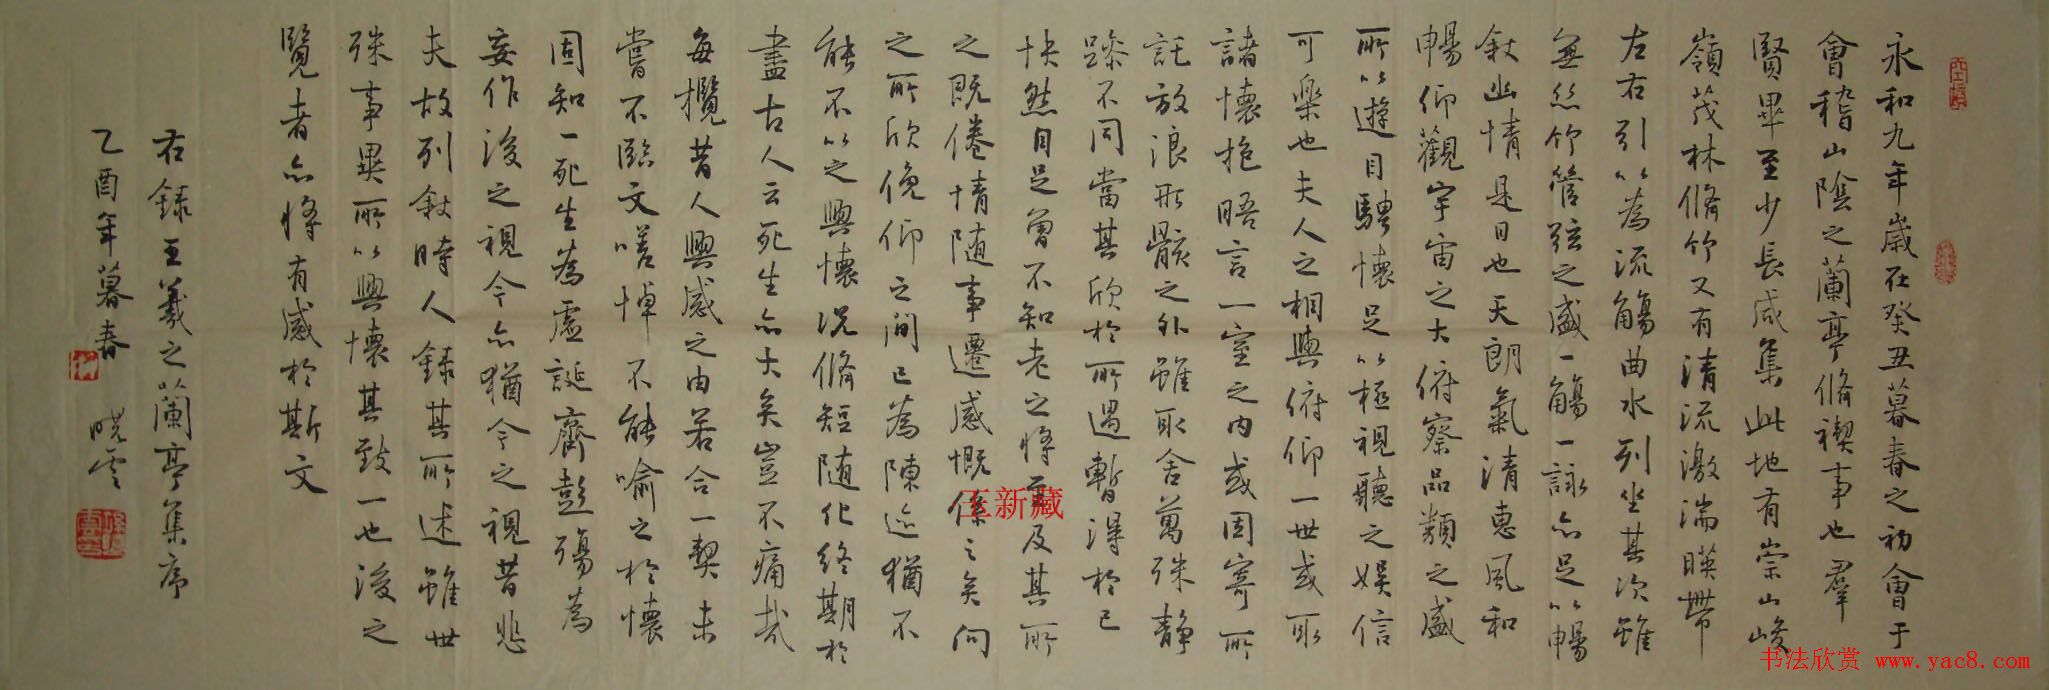 永和九年歲在癸丑暮春之初會于
會稽山陰之蘭亭脩禊事也羣
賢畢至少長咸集此地有崇山峻
嶺茂林脩竹又有清流激湍暎帶
左右引以為流觴曲水列坐其次雖
無絲竹管弦之盛一觴一詠亦足以暢
敘幽情是日也天朗氣清惠風和
暢仰觀宇宙之大俯察品類之盛
所以遊目騁懷足以極視聽之娛信
可樂也夫人之相與俯仰一世或取
諸懷抱晤言一室之內或因寄所
託放浪形骸之外雖取舍萬殊静
躁不同當其欣於所遇暫得於己
怏然自足曾不知老之將至及其所
之既倦情随事遷感慨係之矣向
之所欣俛仰之間已為陳迹猶不
能不以之興懷況脩短随化終期於
盡古人云死生亦大矣豈不痛哉
每攬昔人興感之由若合一契未
嘗不臨文嗟悼不能喻之於懷
固知一死生為虛誕齊彭殤為
妄作後之視今亦猶今之視昔悲
夫故列敘時人録其所述雖世
殊事異所以興懷其致一也後之
覽者亦將有感於斯文
右録王羲之蘭亭集序
乙酉年暮春 曉雲
王新藏
书法欣赏 www.yac8.com